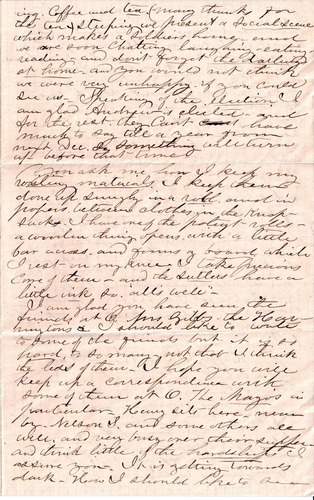 ing. Coffee and tea (many thanks for
the tea) steeping we present a Social Scene
which makes a Soldiers home. and
we are soon Chatting laughing - eating -
reading - and don't forget the
at home - and you would not think
we were very unhappy if you could
see us. Speaking of the Election I
am glad is elected - and
for the rest they Can't have
much to say till a year from
next Dec. So something will turn
up before that time
You ask me how I keep my
writing materials. I keep them
done up snugly in a roll and in
papers between clothes in the Knap-
sack. I have one of the patent rolls -
a wooden thing opens with a little
bar across - and forms a board which
I rest on my knee. I take precious
Care of them - and the Sutlers have a
little ink so. all's well -
I am glad you have seen the
friends at O. Mrs. the
& I should like to write
to some of the friends but it is so
hard, & so many, not that I think
the less of them - I hope you will
keep up a correspondence with
some of them at O. The
particular. Henry sits here near
by. Nelson S. and some others are
well, and very busy over their supper -
and think little of the hardships I
assure you. It is getting towards
dark - How I should like to